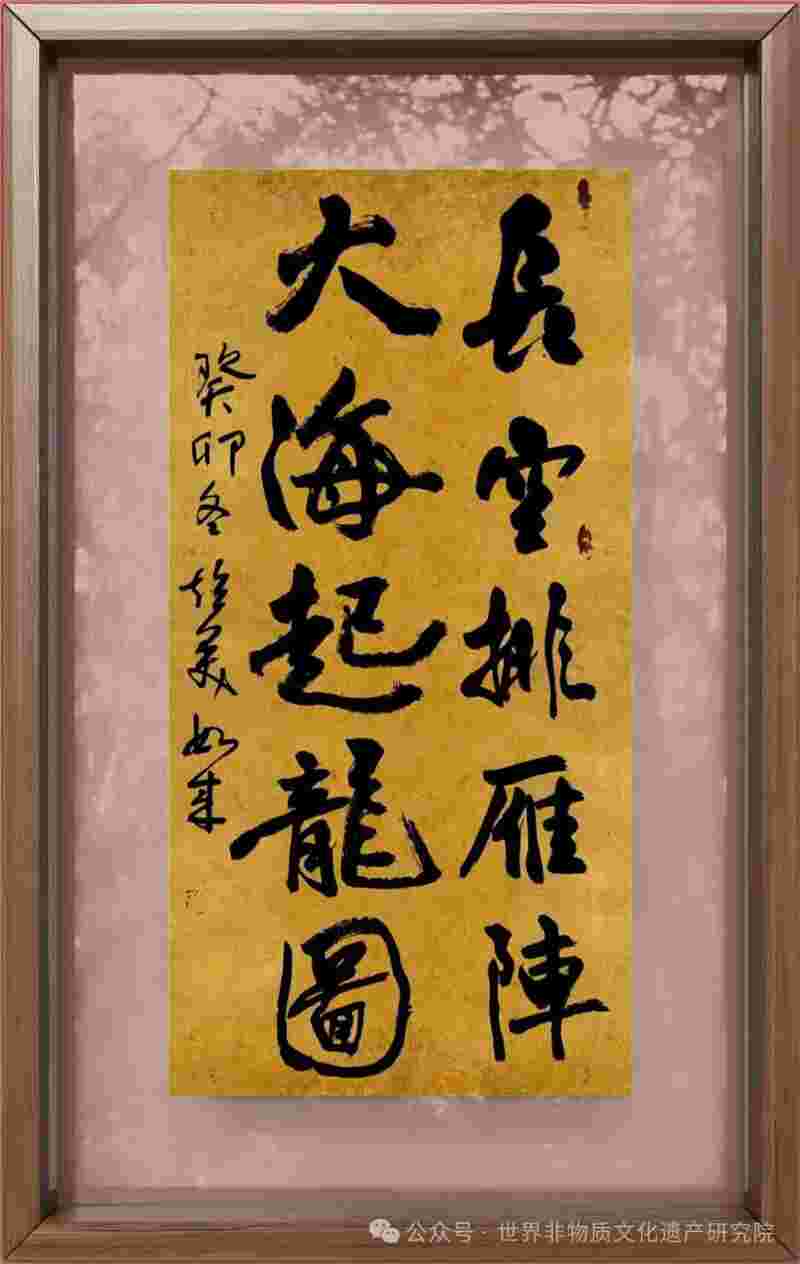 長空排雁陣
大海起龍圖
癸卯冬 美如来
公众号·世界非物质文化遗产研究院